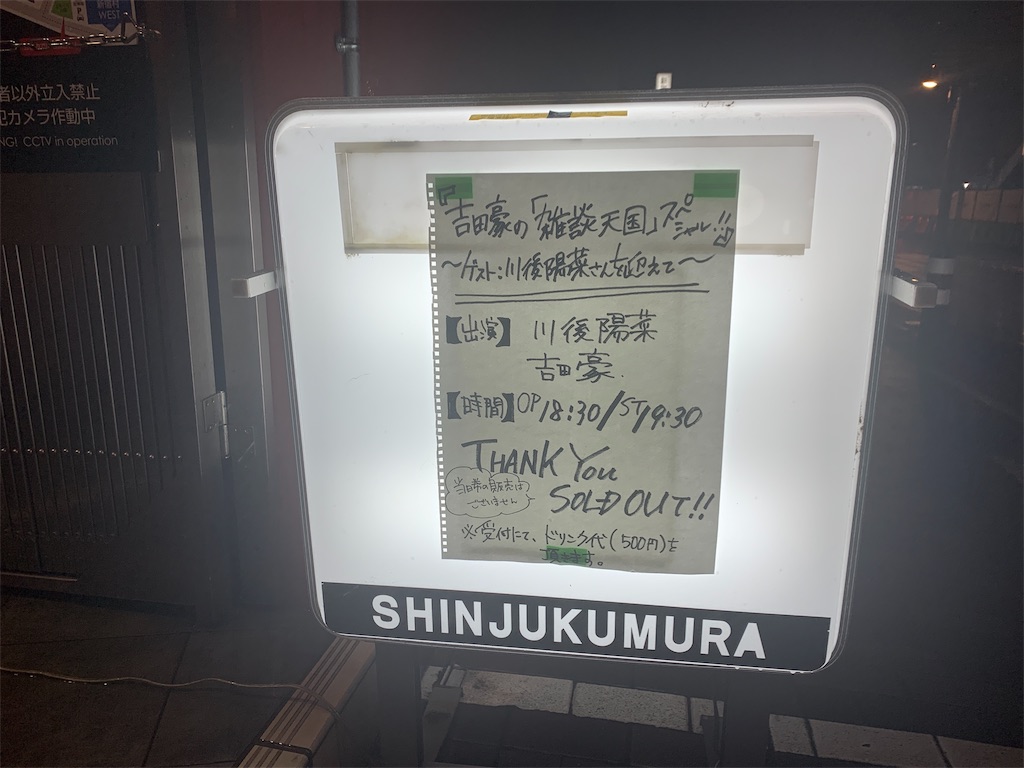 新宿村
WEST
者以外立入禁止
犯カメラ作動中
NG! CCTV in operation
『吉田豪の「雑談天国」スペシャル!!』
～ゲスト:川後陽菜さんを迎えて～
【出演】 川後陽菜
吉田豪.
【時間】OP18:30/ST19:30
THANK YOU
SOLD OUT!!
当日券の販売は
ございません
※受付にて、ドリンク代(500円)を
頂きます。
SHINJUKUMURA